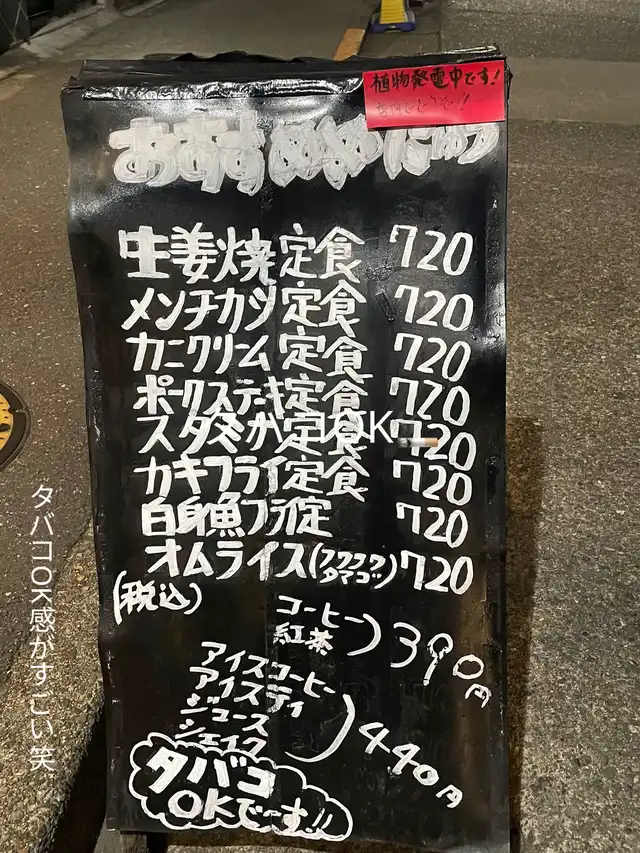 植物発電中です!
おすすめめにゅう
生姜焼定食 720
メンチカツ定食 720
カニクリーム定食 720
ポークステーキ定食 720
スタミナ定食 720
カキフライ定食 720
白身魚フライ定 720
オムライス(フワフワタマゴ) 720
(税込)
コーヒー
紅茶
390円
アイスコーヒー
アイスティ
ジュース
シェイク
440円
タバコ
OKでーす!!
タバコOK感がすごい 笑